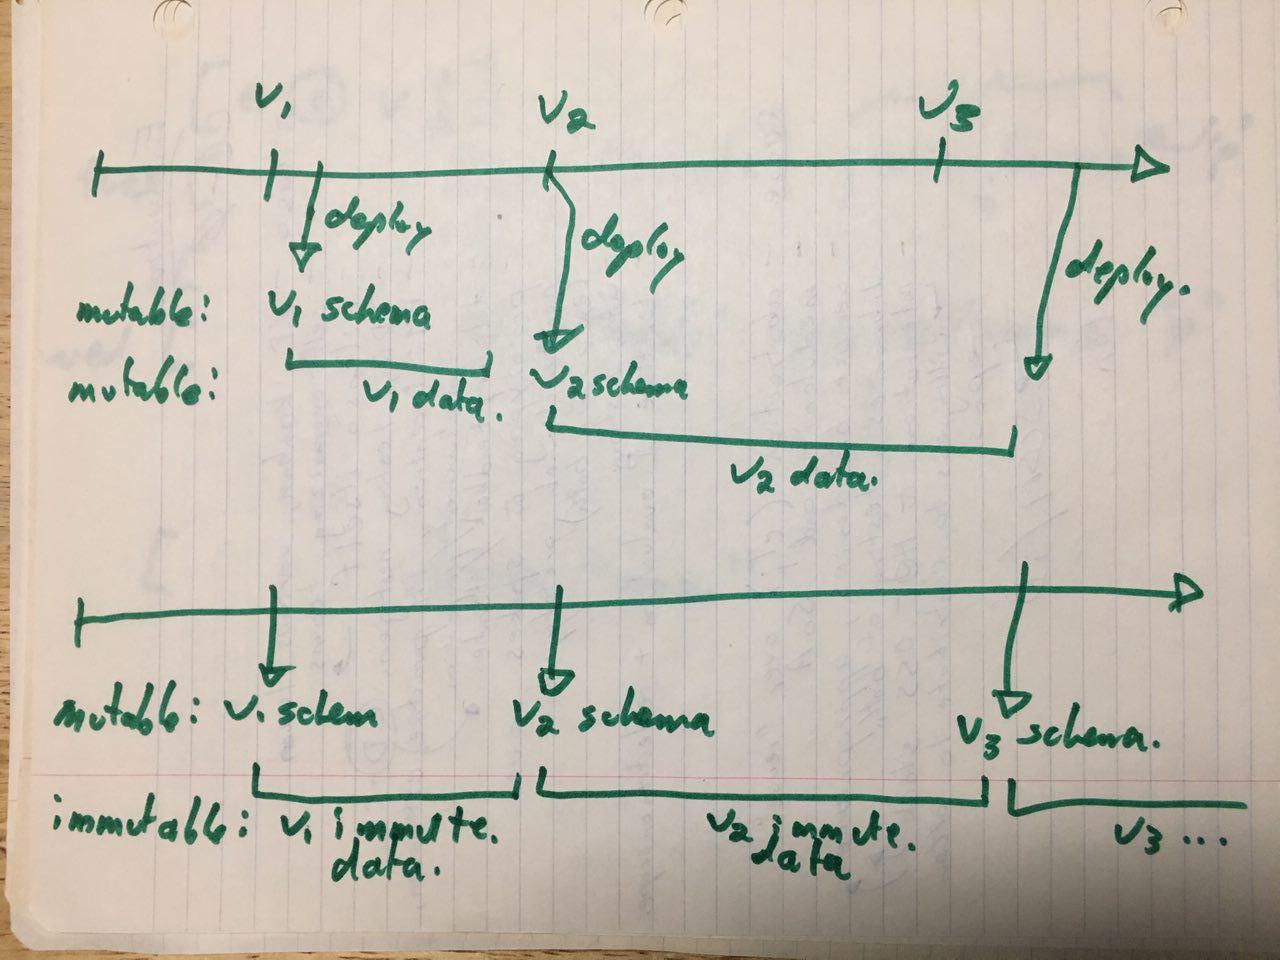 v1 v2 v3
deploy deploy deploy.
mutable: v1 schema
mutable: v1 data. v2 schema
v2 data.
mutable: v1 schem v2 schema v3 schema.
immutable: v1 immute. v2 immute. v3 ...
data. data